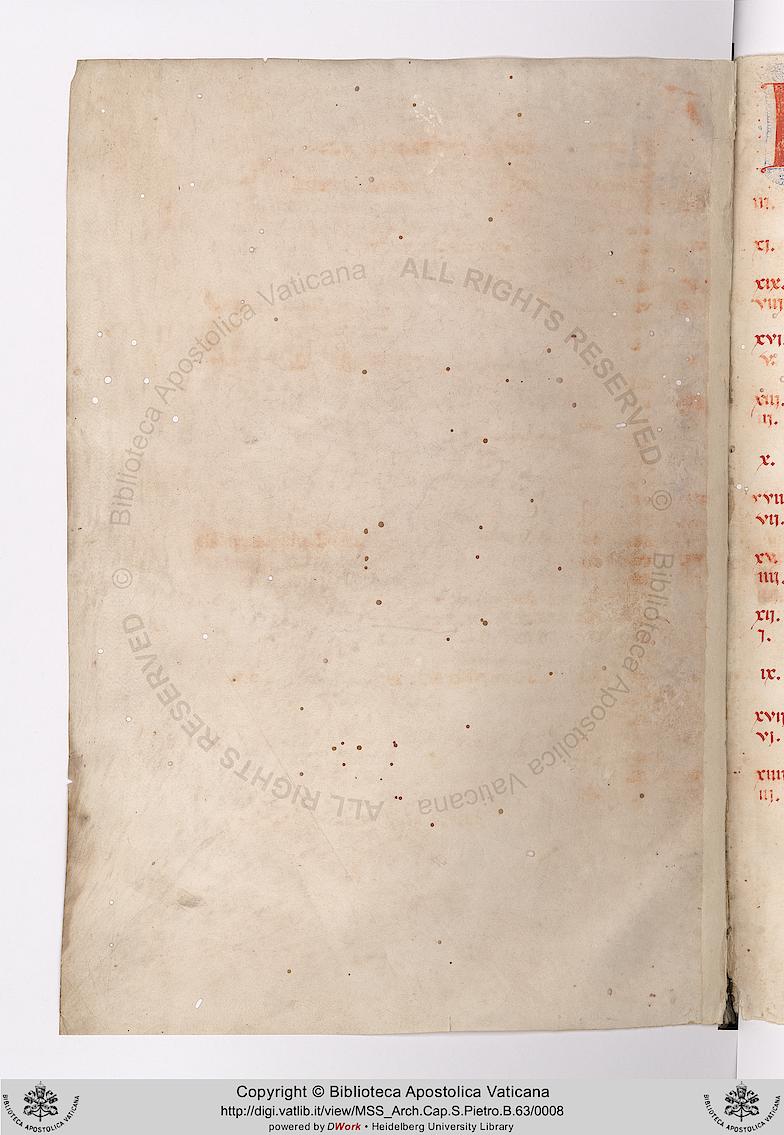 © Biblioteca Apostolica Vaticana ALL RIGHTS RESERVED
© Biblioteca Apostolica Vaticana ALL RIGHTS RESERVED
xj.
xix.
viij
xvj.
v.
xiij.
ij.
x.
vij.
xv.
iiij.
xij.
j.
ix.
xvij
vj.
xiiij
iij.
BIBLIOTECA APOSTOLICA VATICANA
Copyright © Biblioteca Apostolica Vaticana
http://digi.vatlib.it/view/MSS_Arch.Cap.S.Pietro.B.63/0008
powered by DWork • Heidelberg University Library
BIBLIOTECA APOSTOLICA VATICANA